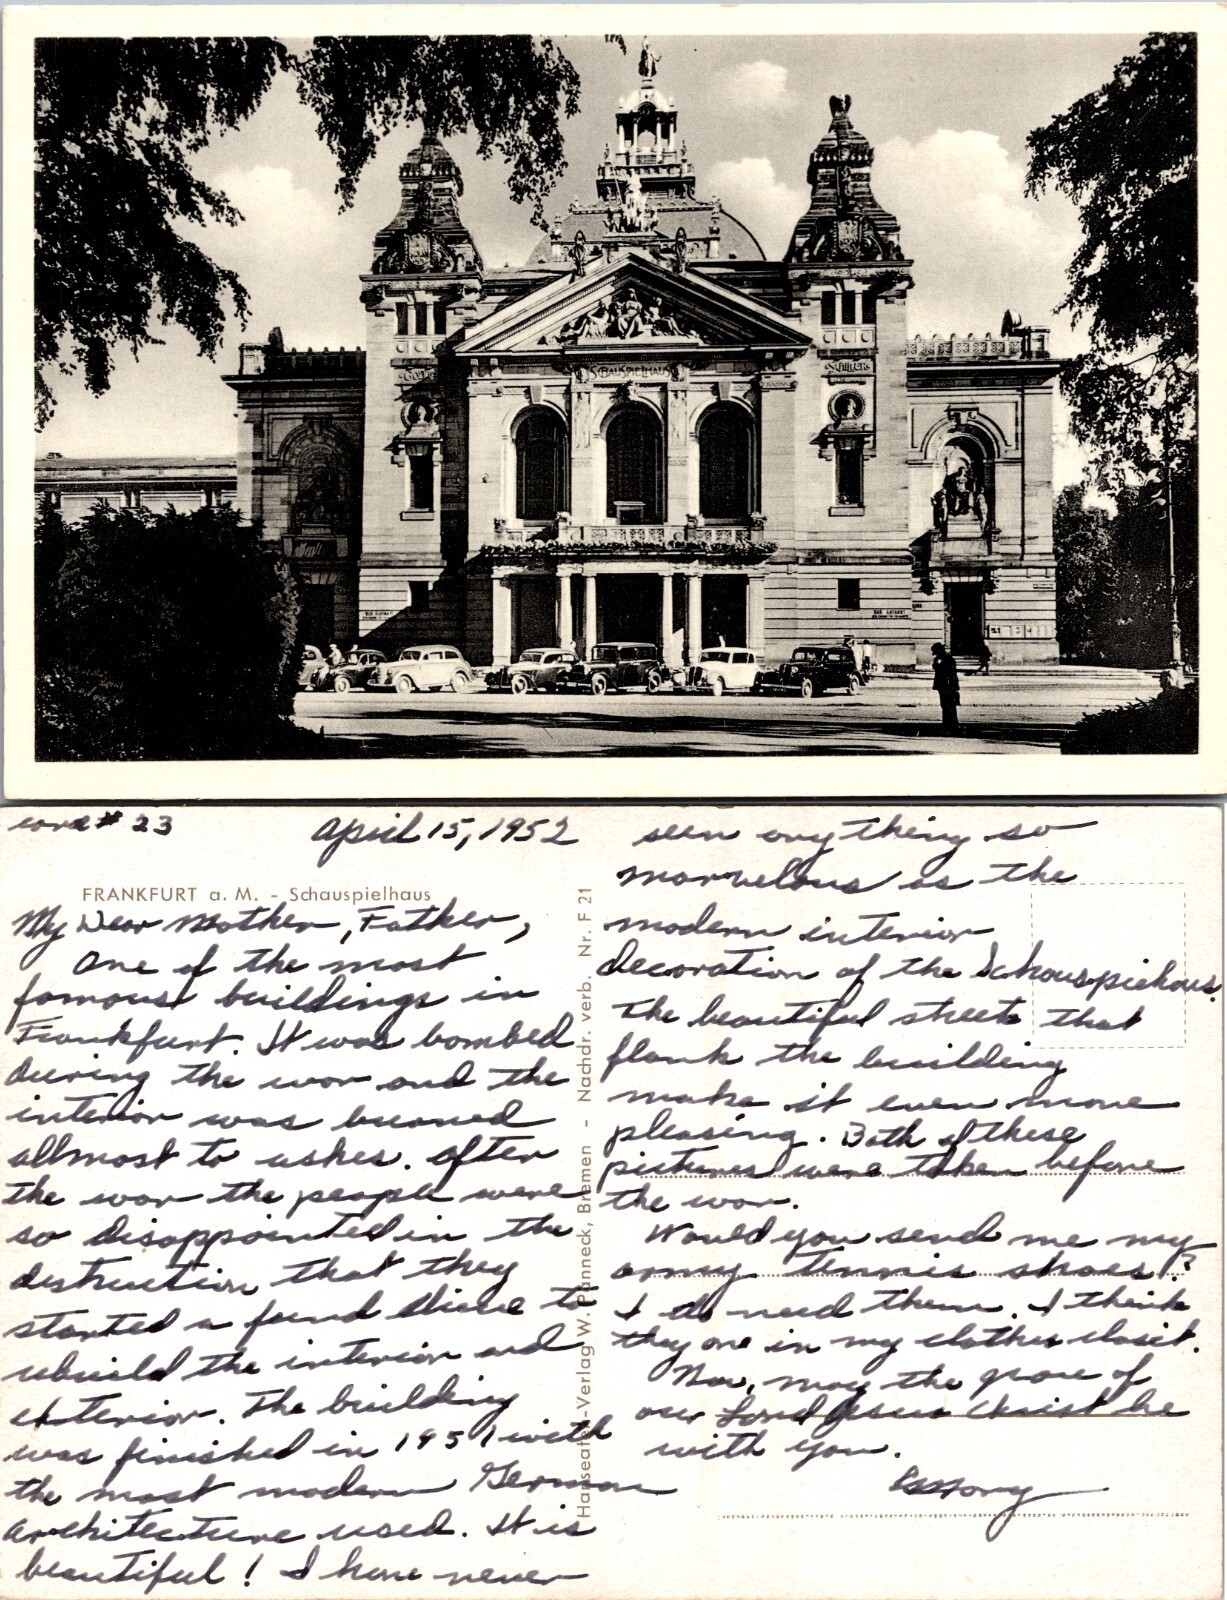 SCHAUSPIELHAUS
SCHILLER
card # 23
April 15, 1952
FRANKFURT a. M. - Schauspielhaus
My Dear Mother, Father,
One of the most
famous buildings in
Frankfurt. It was bombed
during the war and the
interior was burned
allmost to ashes. After
the war the people were
so disappointed in the
distruction that they
started a fund drive to
rebuild the interior and
exterior. The building
was finished in 1951 with
the most modern German
architecture used. It is
beautiful! I have never
Hanseaten-Verlag W. Panneck, Bremen - Nachdr. verb. Nr. F 21
seen any thing so
marvelous as the
modern interior
decoration of the Schauspiehaus.
The beautiful streets that
flank the building
make it even more
pleasing. Both of these
pictures were taken before
the war.
Would you send me my
army tennis shoes?
I do need them. I think
they are in my clothes closit.
Now, may the grace of
our Lord Jesus Christ be
with you.